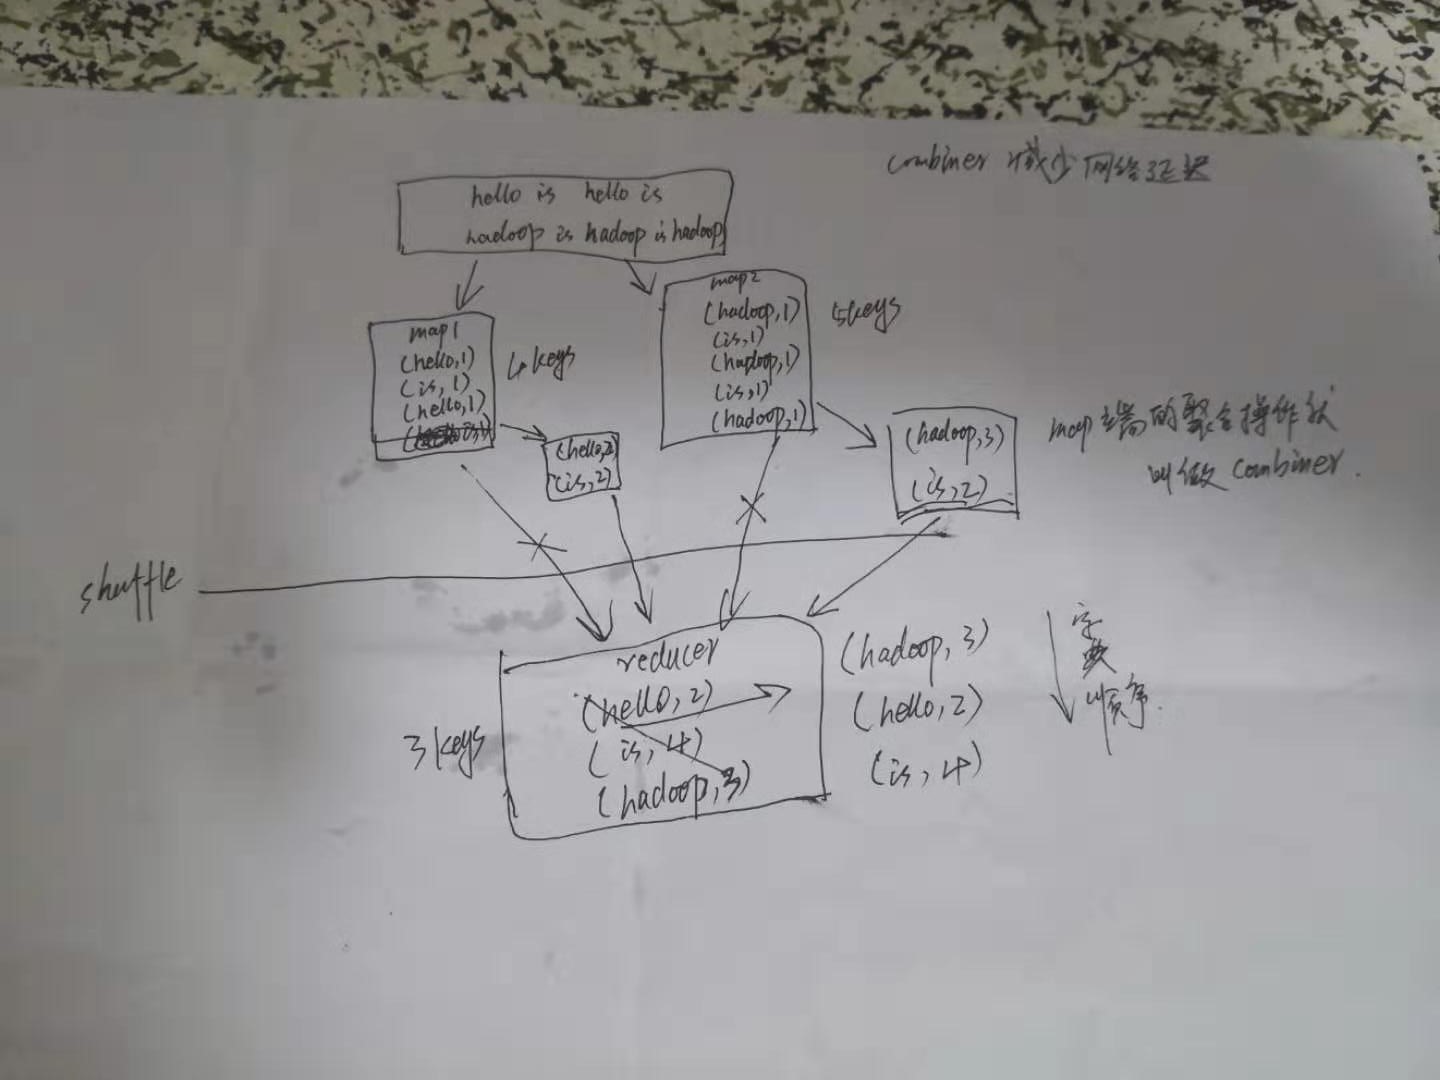 combiner 减少网络延迟
hello is hello is
hadoop is hadoop is hadoop
map1
(hello,1)
(is,1)
(hello,1)
4 keys
(hello,2)
(is,2)
map2
(hadoop,1)
(is,1)
(hadoop,1)
(is,1)
(hadoop,1)
5keys
(hadoop,3)
(is,2)
map端的聚合操作就
叫做 combiner.
shuffle
reducer
(hello,2)
(is,4)
(hadoop,3)
3 keys
(hadoop,3)
(hello,2)
(is,4)
字典顺序.